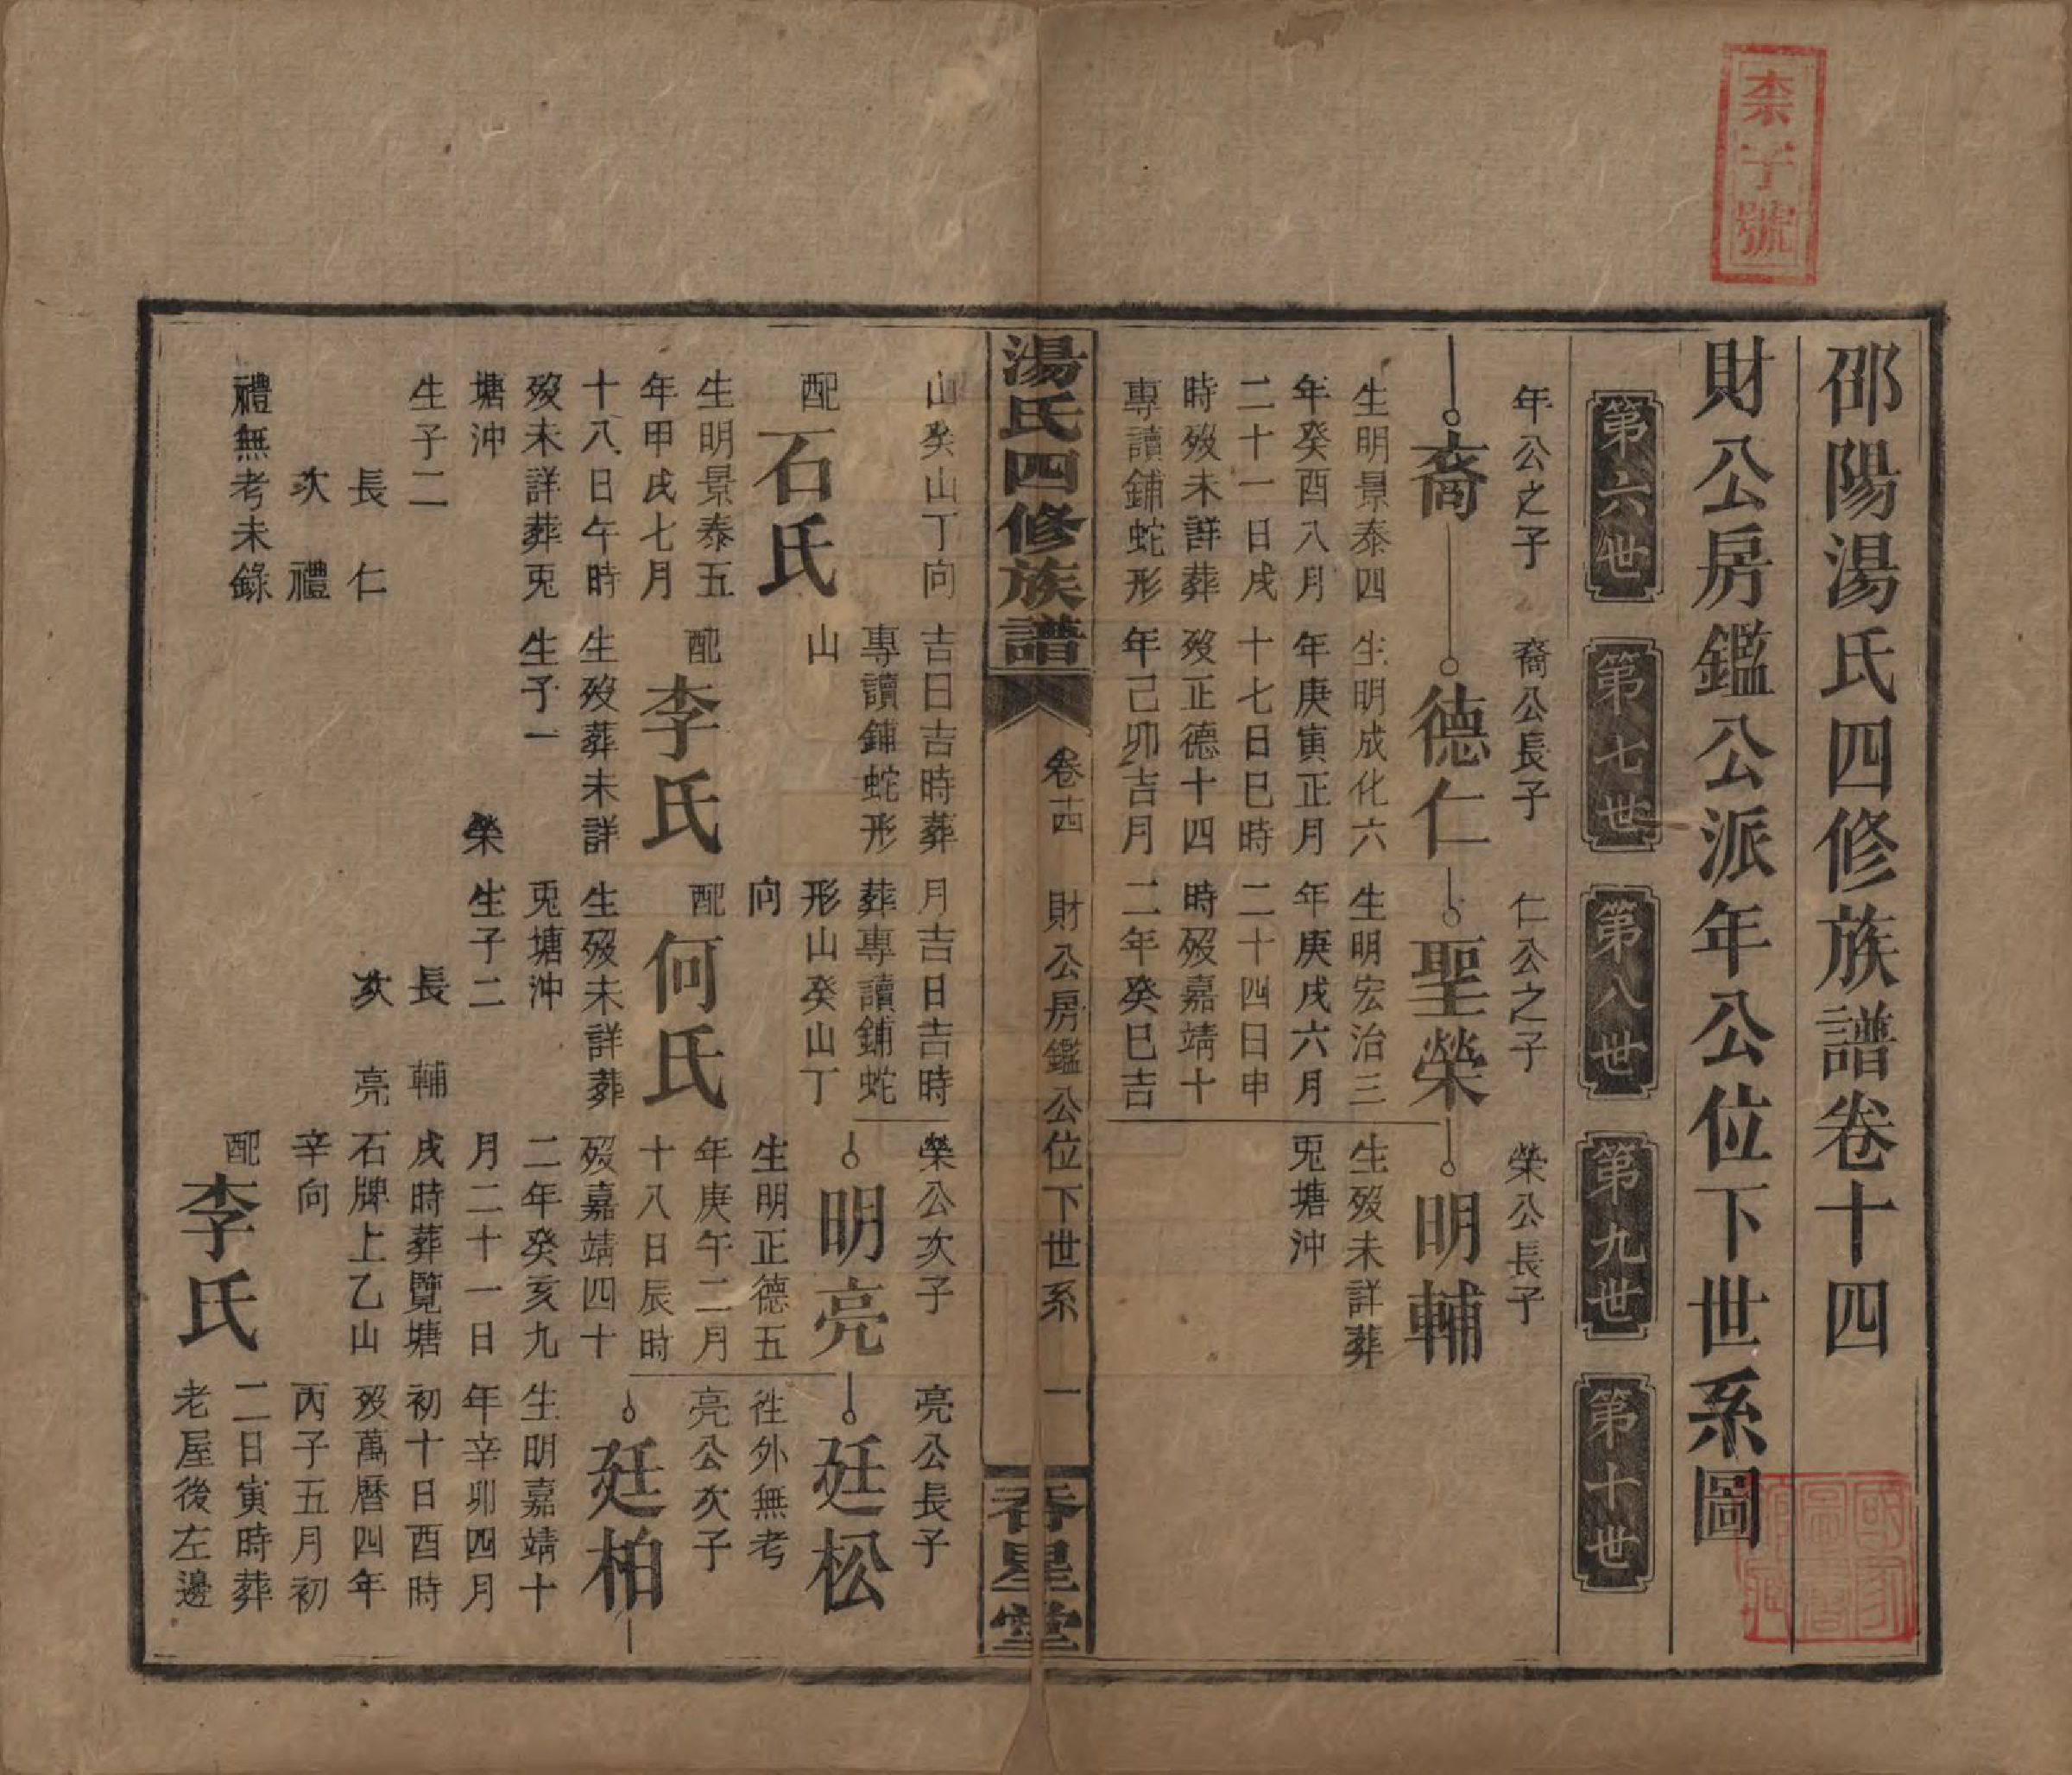 柰字號
邵陽湯氏四修族譜卷十四
財公房鑑公派年公位下世系圖
第六世
第七世
第八世
第九世
第十世
年公之子
裔
生明景泰四
年癸酉八月
二十一日戌
時歿未詳葬
專讀鋪蛇形
山癸山丁向
配
石氏
生明景泰五
年甲戌七月
十八日午時
歿未詳葬兎
塘沖
生子二
長 仁
次 禮
禮無考未錄
裔公長子
德仁
生明成化六
年庚寅正月
十七日巳時
歿正德十四
年己卯吉月
吉日吉時葬
專讀鋪蛇形
山
配
李氏
生歿葬未詳
生子一
榮
仁公之子
聖榮
生明宏治三
年庚戌六月
二十四日申
時歿嘉靖十
二年癸巳吉
月吉日吉時
葬專讀鋪蛇
形山癸山丁
向
配
何氏
生歿未詳葬
兎塘沖
生子二
長 輔
次 亮
榮公長子
明輔
生歿未詳葬
兎塘沖
榮公次子
明亮
生明正德五
年庚午二月
十八日辰時
歿嘉靖四十
二年癸亥九
月二十一日
戌時葬覽塘
石牌上乙山
辛向
配
李氏
亮公長子
廷松
徃外無考
亮公次子
廷柏
生明嘉靖十
年辛卯四月
初十日酉時
歿萬曆四年
丙子五月初
二日寅時葬
老屋後左邊
湯氏四修族譜
卷十四
財公房鑑公位下世系
一
香星堂